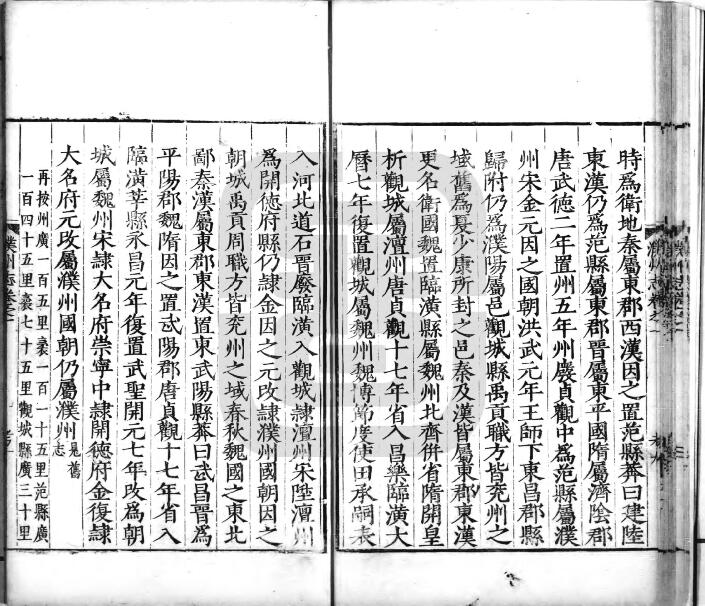 時爲衛地秦屬東郡西漢因之置范縣莽曰建陸
東漢仍爲范縣屬東郡晉屬東平國隋屬濟陰郡
唐武德二年置州五年州廢貞觀中爲范縣屬濮
州宋金元因之國朝洪武元年王師下東昌郡縣
歸附仍爲濮陽屬邑觀城縣禹貢職方皆兖州之
域舊爲夏少康所封之邑秦及漢皆屬東郡東漢
更名衛國魏置臨潢縣屬魏州北齊併省隋開皇
析觀城屬澶州唐貞觀十七年省入昌樂臨潢大
曆七年復置觀城屬魏州魏博節度使田承嗣表
入河北道石晉廢臨潢入觀城隸澶州宋陞澶州
爲開德府縣仍隸金因之元改隸濮州國朝因之
朝城禹貢周職方皆兖州之域春秋魏國之東北
鄙秦漢屬東郡東漢置東武陽縣莽曰武昌晉爲
平陽郡魏隋因之置武陽郡唐貞觀十七年省入
臨潢莘縣永昌元年復置武聖開元七年改爲朝
城屬魏州宋隸大名府崇寧中隸開德府金復隸
大名府元改屬濮州國朝仍屬濮州見舊志
再按州廣一百五里袤一百一十五里范縣廣
一百四十五里袤七十五里觀城縣廣三十里
濮州志卷之一